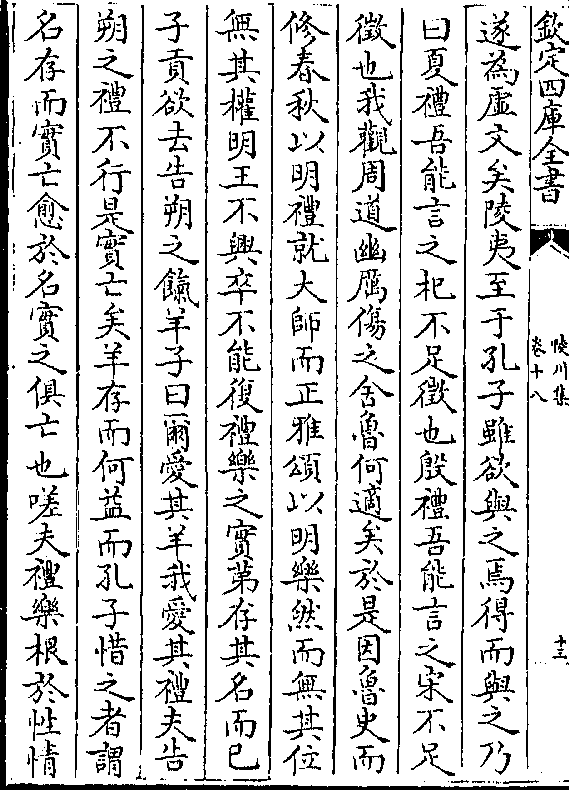 欽定四庫全書
陵川集
卷十八
十三
遂為虚文矣陵夷至于孔子雖欲與之焉得而與之乃
曰夏禮吾能言之𣏌不足徵也殷禮吾能言之宋不足
徵也我觀周道幽厲傷之舍魯何適矣於是因魯史而
修春秋以明禮就大師而正雅頌以明樂然而無其位
無其權明王不興卒不能復禮樂之實第存其名而已
子貢欲去告朔之餼羊子曰爾愛其羊我愛其禮夫告
朔之禮不行是實亡矣羊存而何益而孔子惜之者謂
名存而實亡愈於名實之俱亡也嗟夫禮樂根於性情